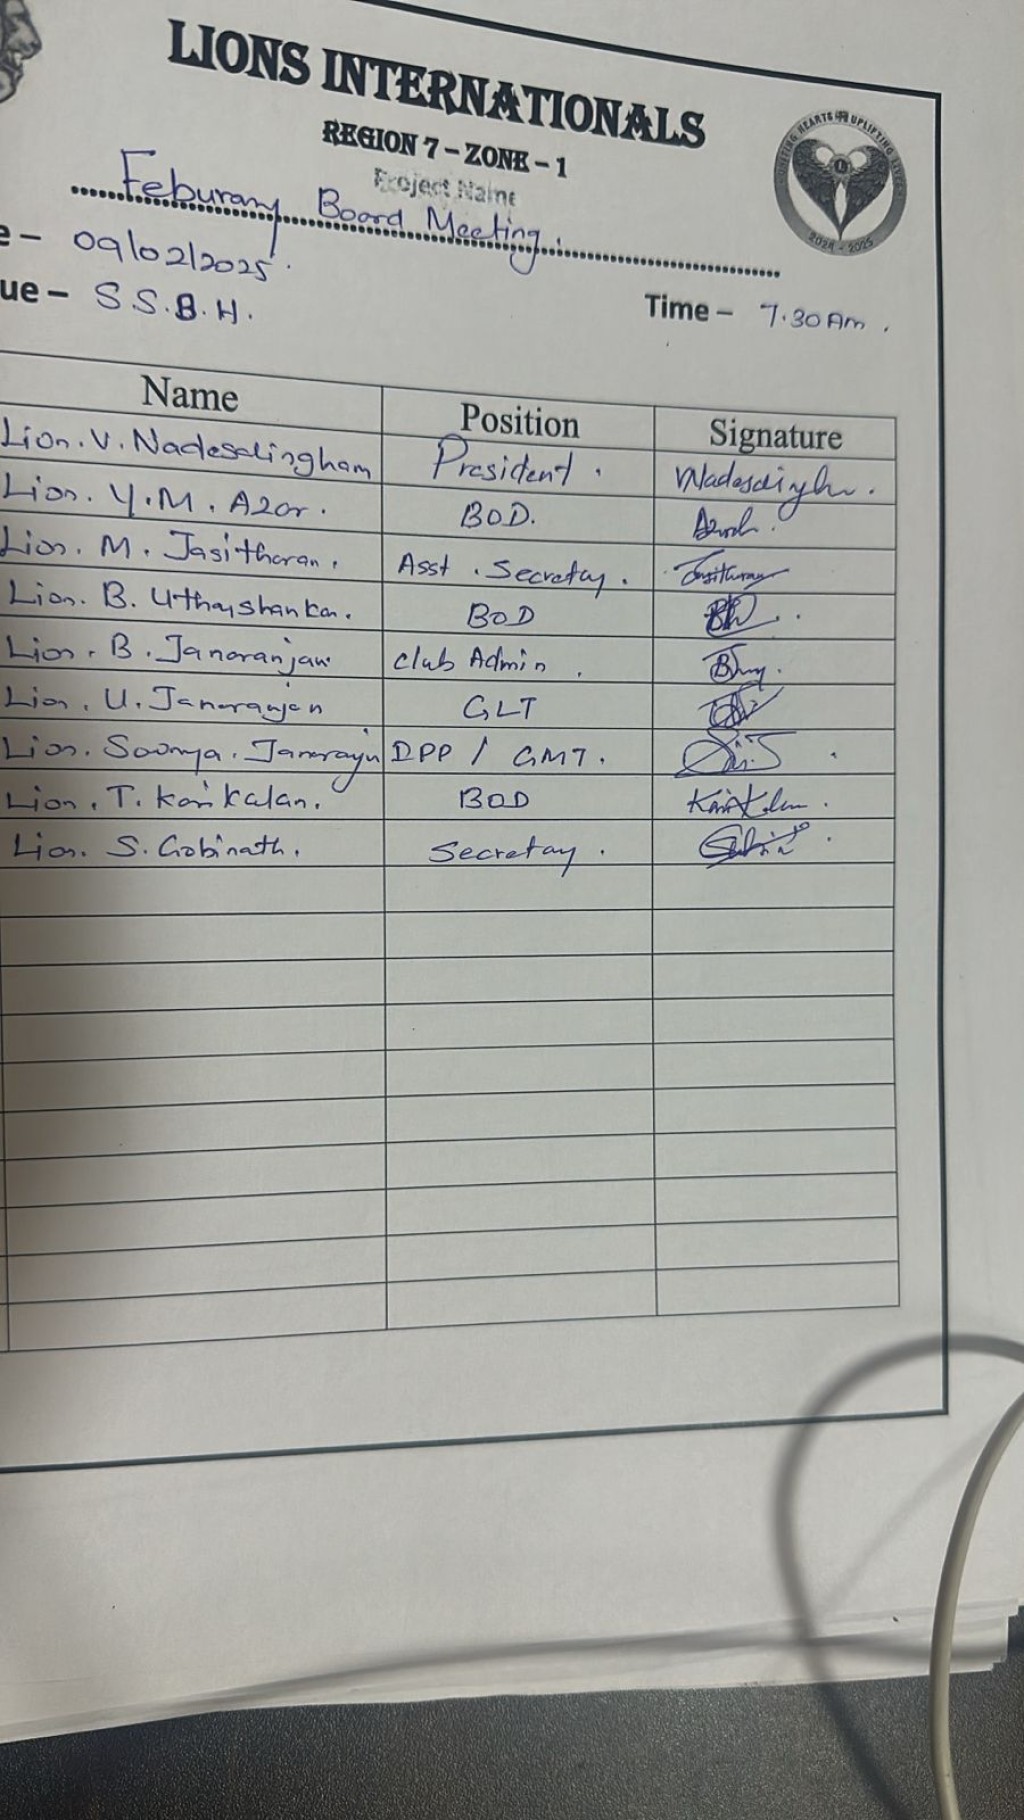 LIONS INTERNATIONALS
REGION 7 – ZONE – 1
Project Name
Feburary Board Meeting.
e – 09/02/2025.
ue – S.S.B.H.
Time – 7.30 Am.
HEARTS UPLIFTING
2024 - 2025
Name Position Signature
Lion. V. Nadesalingham President. Nadesalingham.
Lion. Y. M. Azar. BOD.
Lion. M. Jasitharan. Asst. Secretay. Jasitharan
Lion. B. Uthayshankar. BOD
Lion. B. Janaranjan Club Admin.
Lion. U. Janaranjan GLT
Lion. Sowmya. Janaranjan DPP / GMT.
Lion. T. Karikalan. BOD
Lion. S. Gobinath. Secretay.